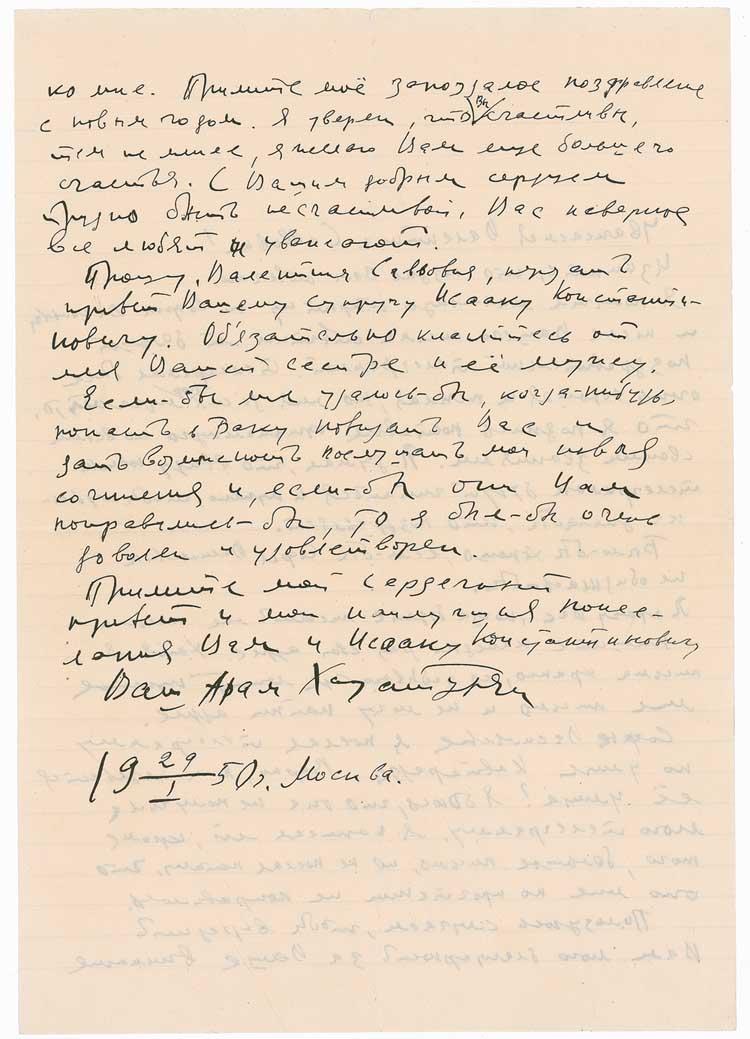 ко мне. Примите моё запоздалое поздравление
с новым годом. Я уверен, что Вы счастливы,
тем не менее, я желаю Вам еще большего
счастья. С Вашим добрым сердцем
трудно быть несчастливой. Вас наверное
все любят и уважают.
Прошу, Валентина Саввовна, передать
привет Вашему супругу Исааку Константи-
новичу. Обязательно кланяйтесь от
меня Вашей сестре и её мужу.
Если-бы мне удалось-бы, когда-нибудь
попасть в Баку повидать Вас и
дать возможность послушать мои новые
сочинения и, если-бы они Вам
понравились-бы, то я был-бы очень
доволен и удовлетворен.
Примите мой сердечный
привет и мои наилучшия поже-
лания Вам и Исааку Константиновичу
Ваш Арам Хачатурян
19 29/I 50 г. Москва.